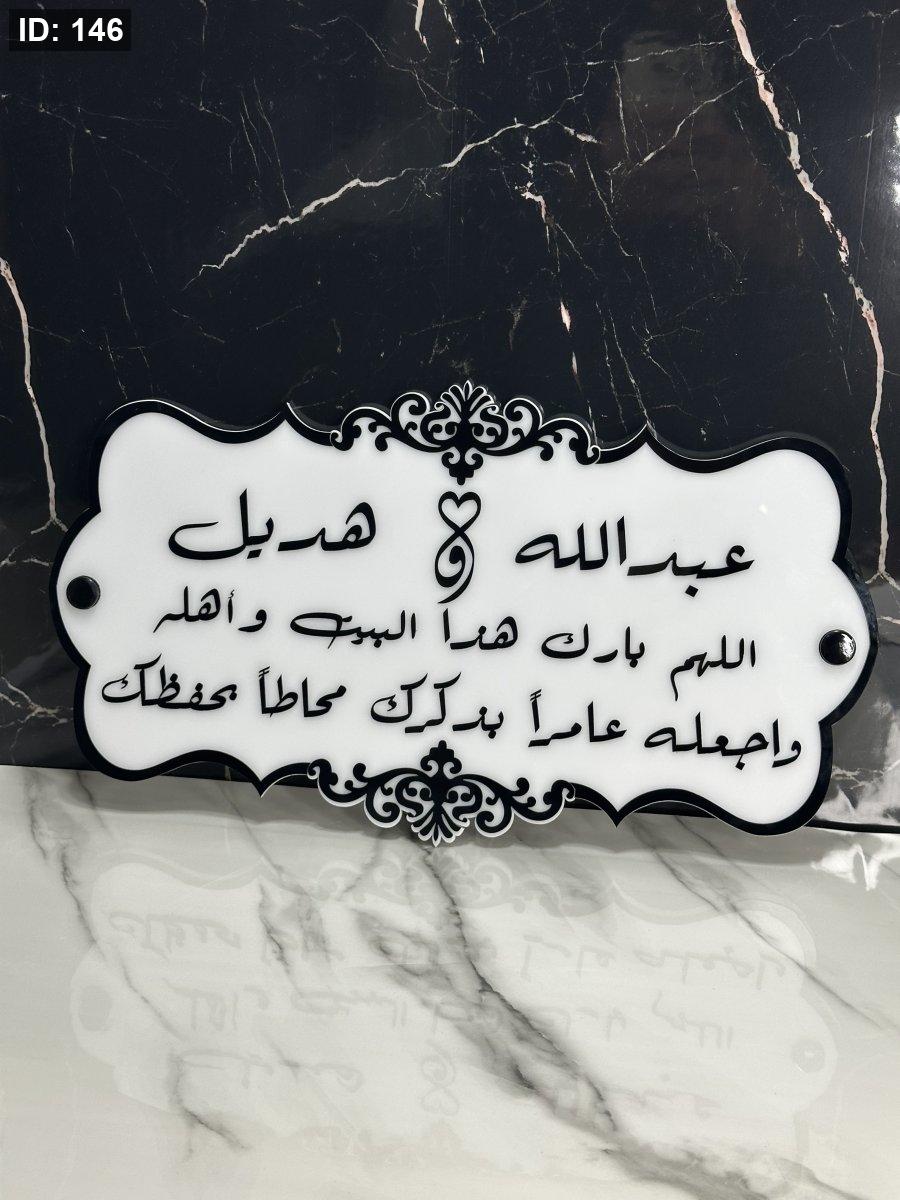 ID: 146
عبدالله و هديل
اللهم بارك هذا البيت وأهله
واجعله عامراً بذكرك محاطاً بحفظك